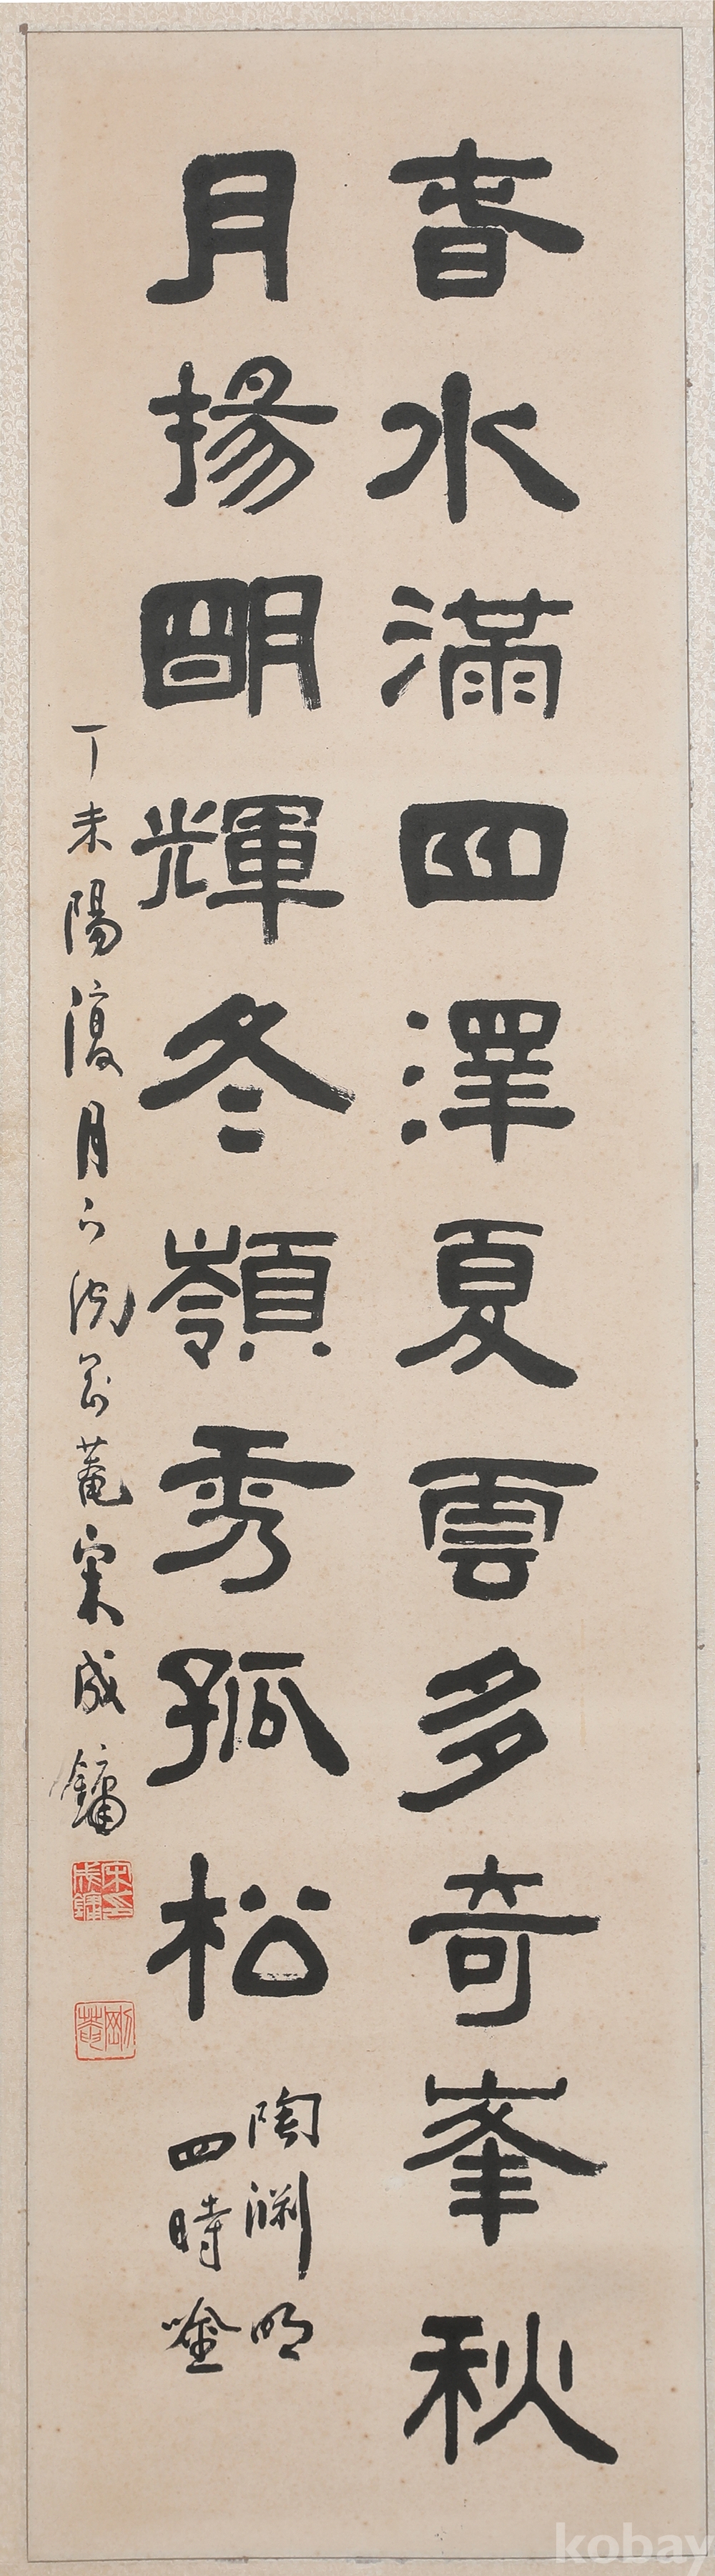 春水滿四澤夏雲多奇峯秋
月揚明輝冬嶺秀孤松
陶淵明
四時唫
丁未陽復月下浣剛菴宋成鏞
宋成鏞印
剛菴
kobay